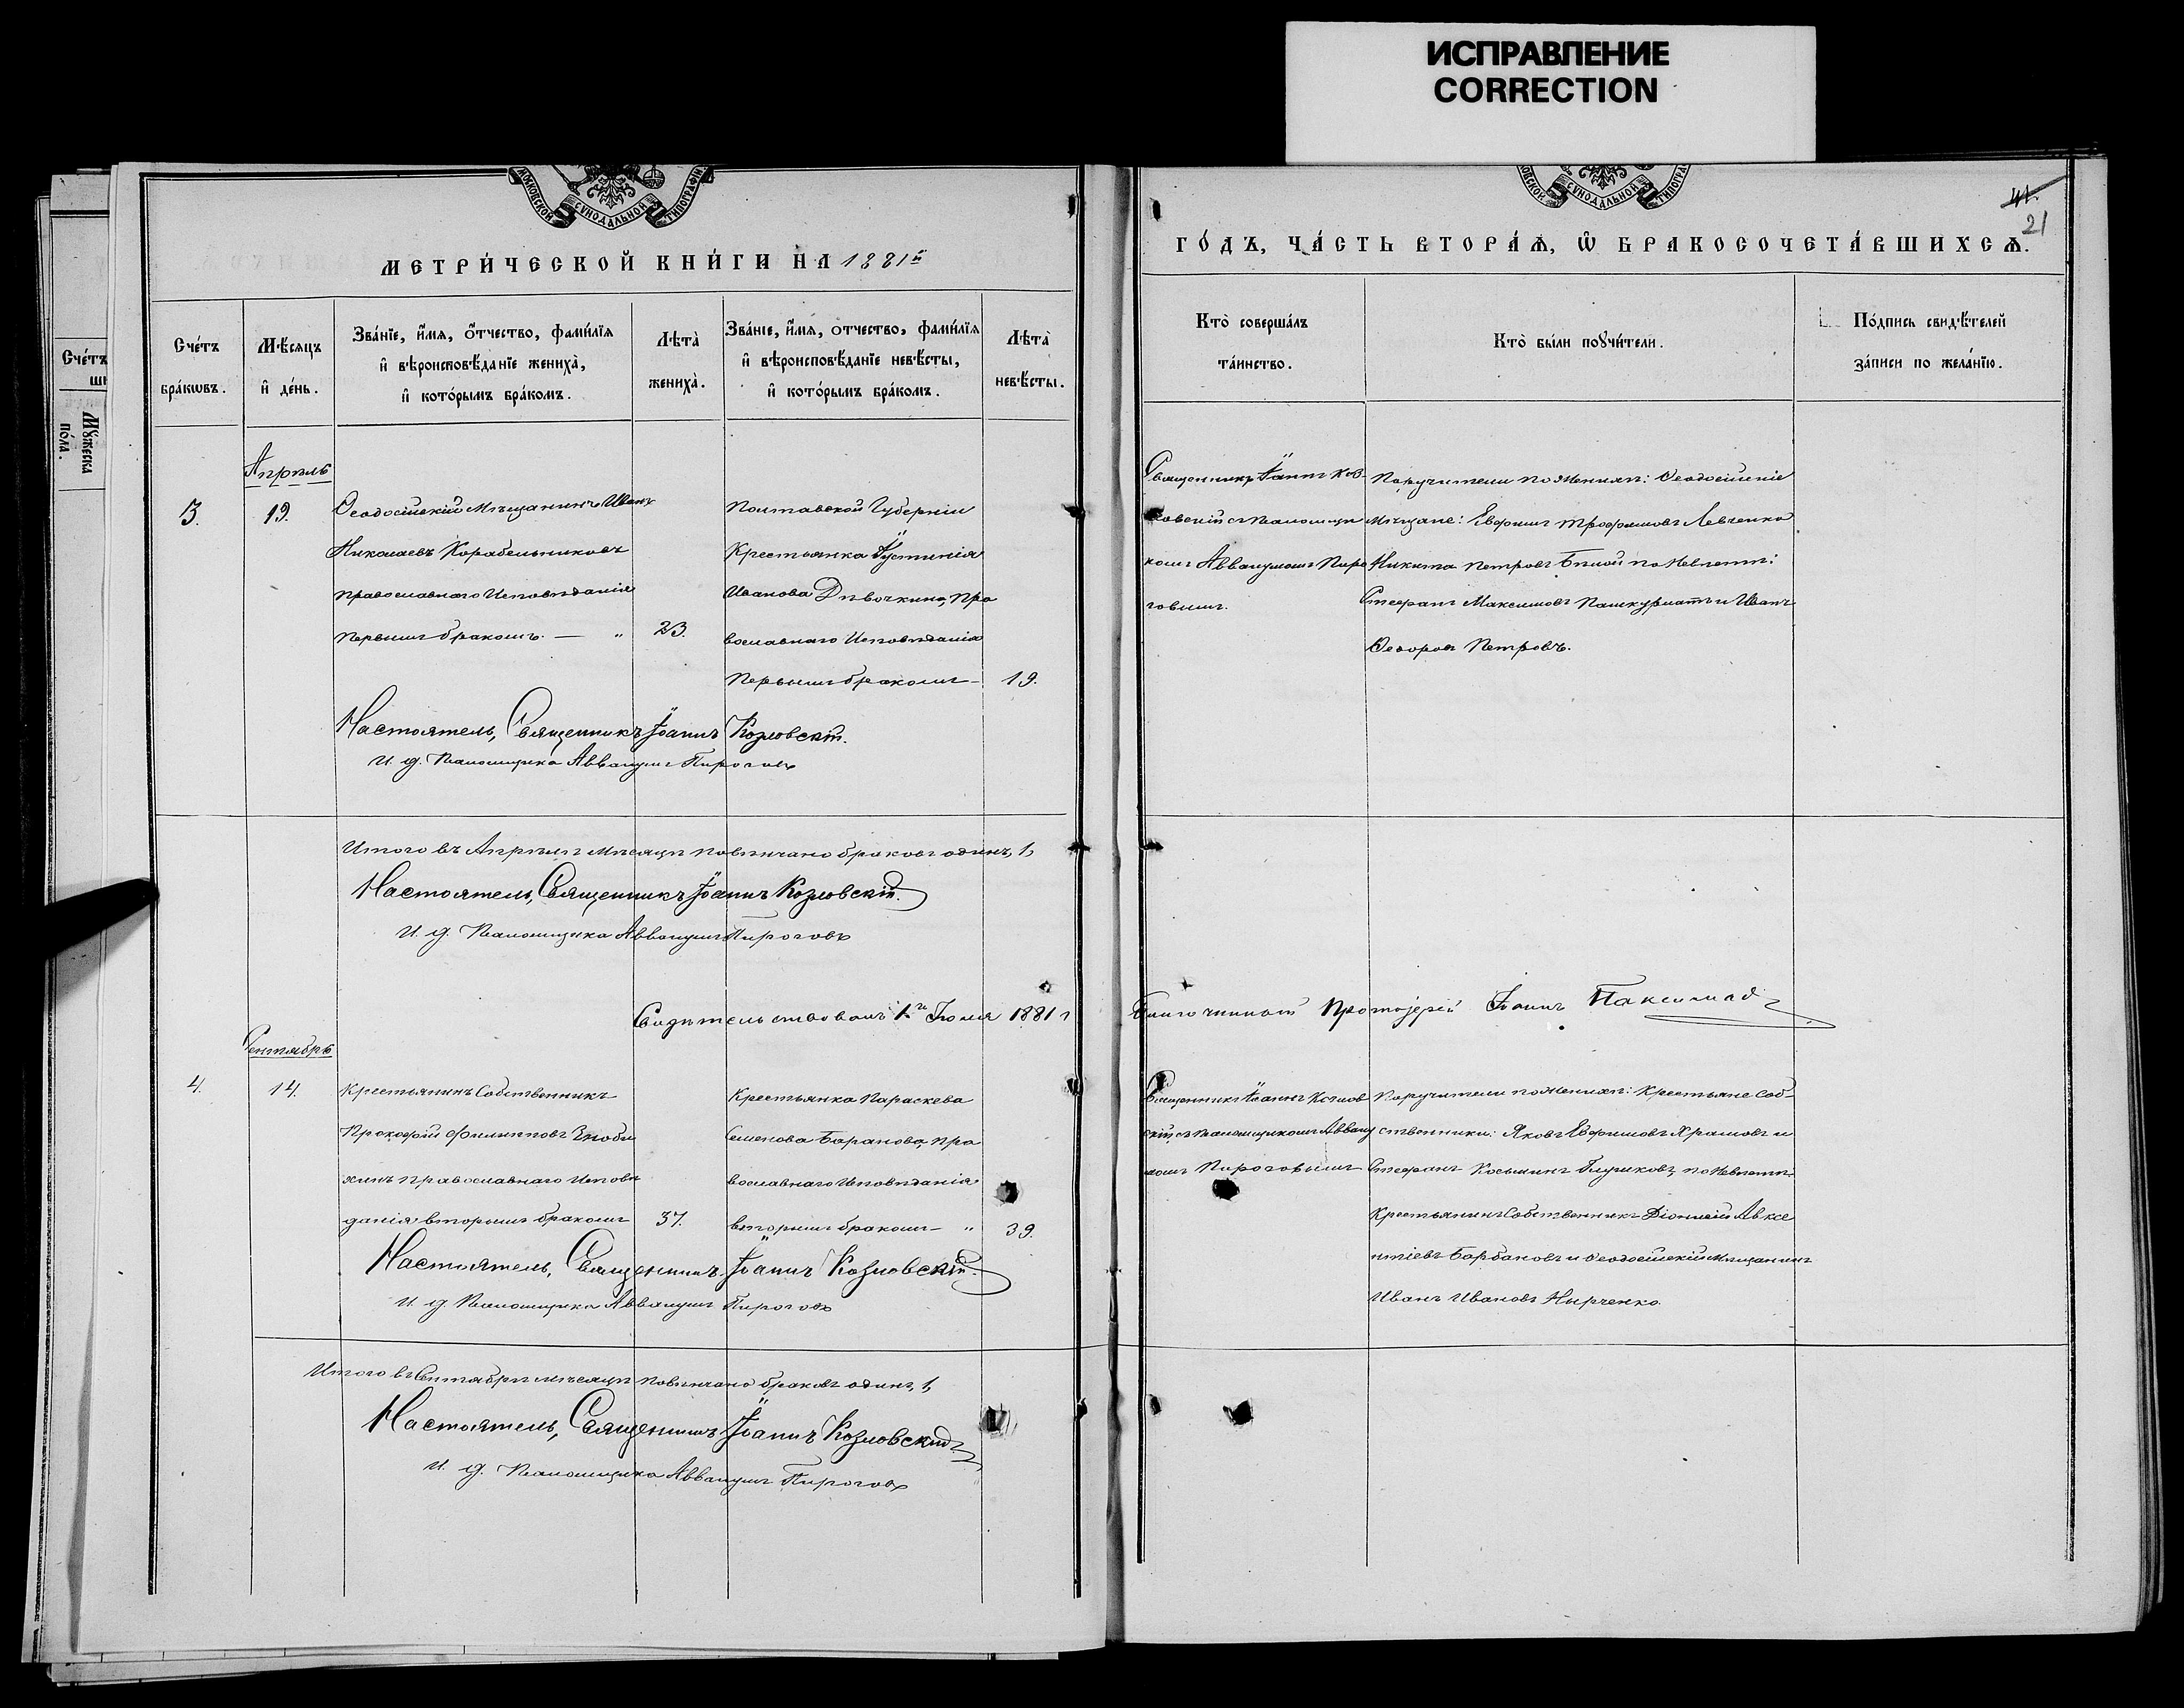 ИСПРАВЛЕНИЕ
CORRECTION
МОСКОВСКОЙ СѴНОДАЛЬНОЙ ТИПОГРАФІИ
СѴНОДАЛЬНОЙ ТИПОГРАФІИ
41.
21
МЕТРИ́ЧЕСКОЙ КНИ́ГИ НА 1881й
ГО́ДЪ, ЧА́СТЬ ВТОРА́Ѧ, Ѿ БРАКОСОЧЕТА́ВШИХСѦ.
Сче́тъ
бра́кѡвъ.
Мѣ́сяцъ
и҆ де́нь.
Зва́нїе, и҆́мя, ѻ҆́тчество, фами́лїя
и҆ вѣроисповѣ́данїе жениха̀,
и҆ кото́рымъ бра́комъ.
Лѣта̀
жениха̀.
Зва́нїе, и҆́мя, отчество, фами́лїя
и҆ вѣроисповѣ́данїе невѣ́сты,
и҆ кото́рымъ бра́комъ.
Лѣта̀
невѣ́сты.
Кто̀ соверша́лъ
та́инство.
Кто̀ бы́ли поꙋчи́тели.
По́дпись свидѣ́телей
за́писи по жела́нїю.
Сче́тъ
Мꙋ́жеска
по́ла.
Апрѣль
3.
19.
Ѳеодосійскій Мѣщанинъ Иванъ
Николаевъ Корабельниковъ
православнаго Исповѣданія
первымъ бракомъ. — "
23.
Полтавской Губерніи
Крестьянка Іустинія
Иванова Дѣвочкина, пра
вославнаго Исповѣданія
первымъ бракомъ —
19.
Священникъ Іоаннъ Коз-
ловскій съ Псаломщи
комъ Аввакумомъ Пиро
говымъ.
Поручители по женихѣ: Ѳеодосійскіе
Мѣщане: Евфимъ Трофимовъ Левченко
Никита Петровъ Бѣлой по Невѣстѣ:
Стефанъ Максимовъ Пашкурнатъ и Иванъ
Ѳеодоровъ Петровъ.
Настоятель, Священникъ Іоаннъ Козловскій.
И. д. Псаломщика Аввакумъ Пироговъ
Итого въ Апрѣлѣ мѣсяцѣ повѣнчано браковъ одинъ, 1,
Настоятель, Священникъ Іоаннъ Козловскій.
И. д. Псаломщика Аввакумъ Пироговъ
Свидѣтельствовалъ 1го Іюля 1881 г
Благочинный Протоіерей Іоаннъ
Сентябрь
4.
14.
Крестьянинъ Собственникъ
Прокофій Филипповъ Зноби
хинъ православнаго Исповѣ
данія вторымъ бракомъ
37.
Крестьянка Параскева
Семенова Баранова, пра
вославнаго Исповѣданія
вторымъ бракомъ — "
39.
Священникъ Іоаннъ Козлов
скій, съ Псаломщикомъ Авваку
момъ Пироговымъ
Поручители по женихѣ: Крестьяне Соб-
ственники: Яковъ Евфимовъ Храмовъ и
Стефанъ Косьминъ Глушковъ, по Невѣстѣ:
Крестьянинъ Собственникъ Діонисій Авксе
нтіевъ Барбановъ и Ѳеодосійскій Мѣщанинъ
Иванъ Ивановъ Нырченко.
Настоятель, Священникъ Іоаннъ Козловскій.
И. д. Псаломщика Аввакумъ Пироговъ
Итого въ Сентябрѣ мѣсяцѣ повѣнчано браковъ одинъ, 1,
Настоятель, Священникъ Іоаннъ Козловскій.
И. д. Псаломщика Аввакумъ Пироговъ